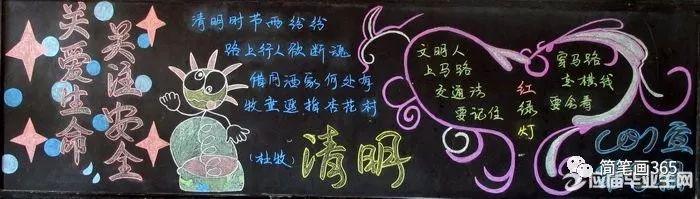 关爱生命
关注安全
清明时节雨纷纷
路上行人欲断魂
借问酒家何处有
牧童遥指杏花村
(杜牧)
清明
文明人
上马路
交通法
要记住
红绿灯
要会看
穿马路
走横线
简笔画365
应届毕业生网